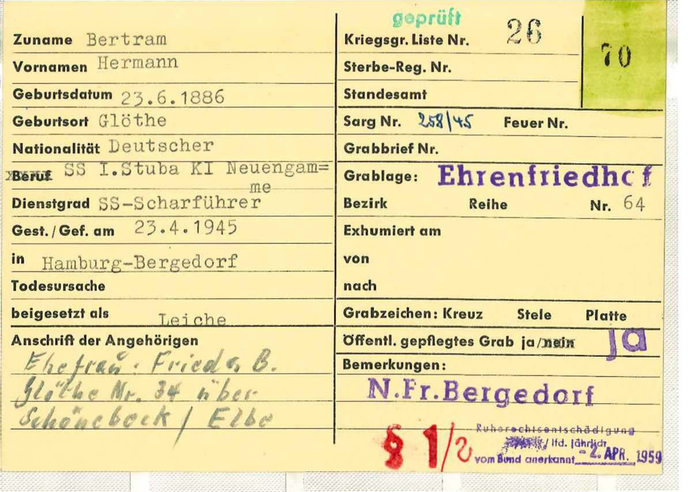 geprüft
Zuname Bertram
Vornamen Hermann
Geburtsdatum 23.6.1886
Geburtsort Glöthe
Nationalität Deutscher
Beruf SS I.Stuba KI Neuengam=
me
Dienstgrad SS-Scharführer
Gest./Gef. am 23.4.1945
in Hamburg-Bergedorf
Todesursache
beigesetzt als Leiche
Anschrift der Angehörigen
Ehefrau: Frieda B.
Glöthe Nr. 34 über
Schönebeck / Elbe
Kriegsgr. Liste Nr. 26
70
Sterbe-Reg. Nr.
Standesamt
Sarg Nr. 258/45 Feuer Nr.
Grabbrief Nr.
Grablage: Ehrenfriedhof
Bezirk Reihe Nr. 64
Exhumiert am
von
nach
Grabzeichen: Kreuz Stele Platte
Öffentl. gepflegtes Grab ja/nein ja
Bemerkungen:
N.Fr.Bergedorf
§ 1/2
Ruherechtsentschädigung
/ lfd. jährlich
vom Bund anerkannt -2. APR. 1959